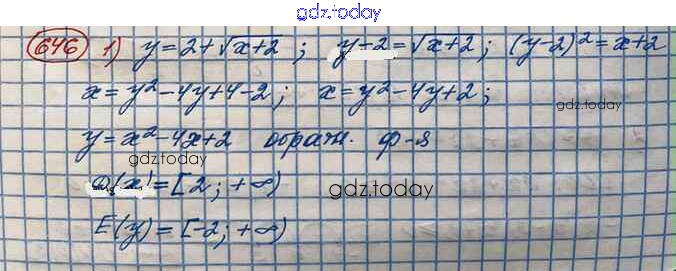 gdz.today
646 1) y = 2 + √x+2 ; y-2 = √x+2 ; (y-2)² = x+2
x = y² - 4y + 4 - 2 ; x = y² - 4y + 2 ;
gdz.today
y = x² - 4x + 2 обратн. ф-я
gdz.today
D(x) = [2 ; +∞)
gdz.today
E(y) = [-2 ; +∞)